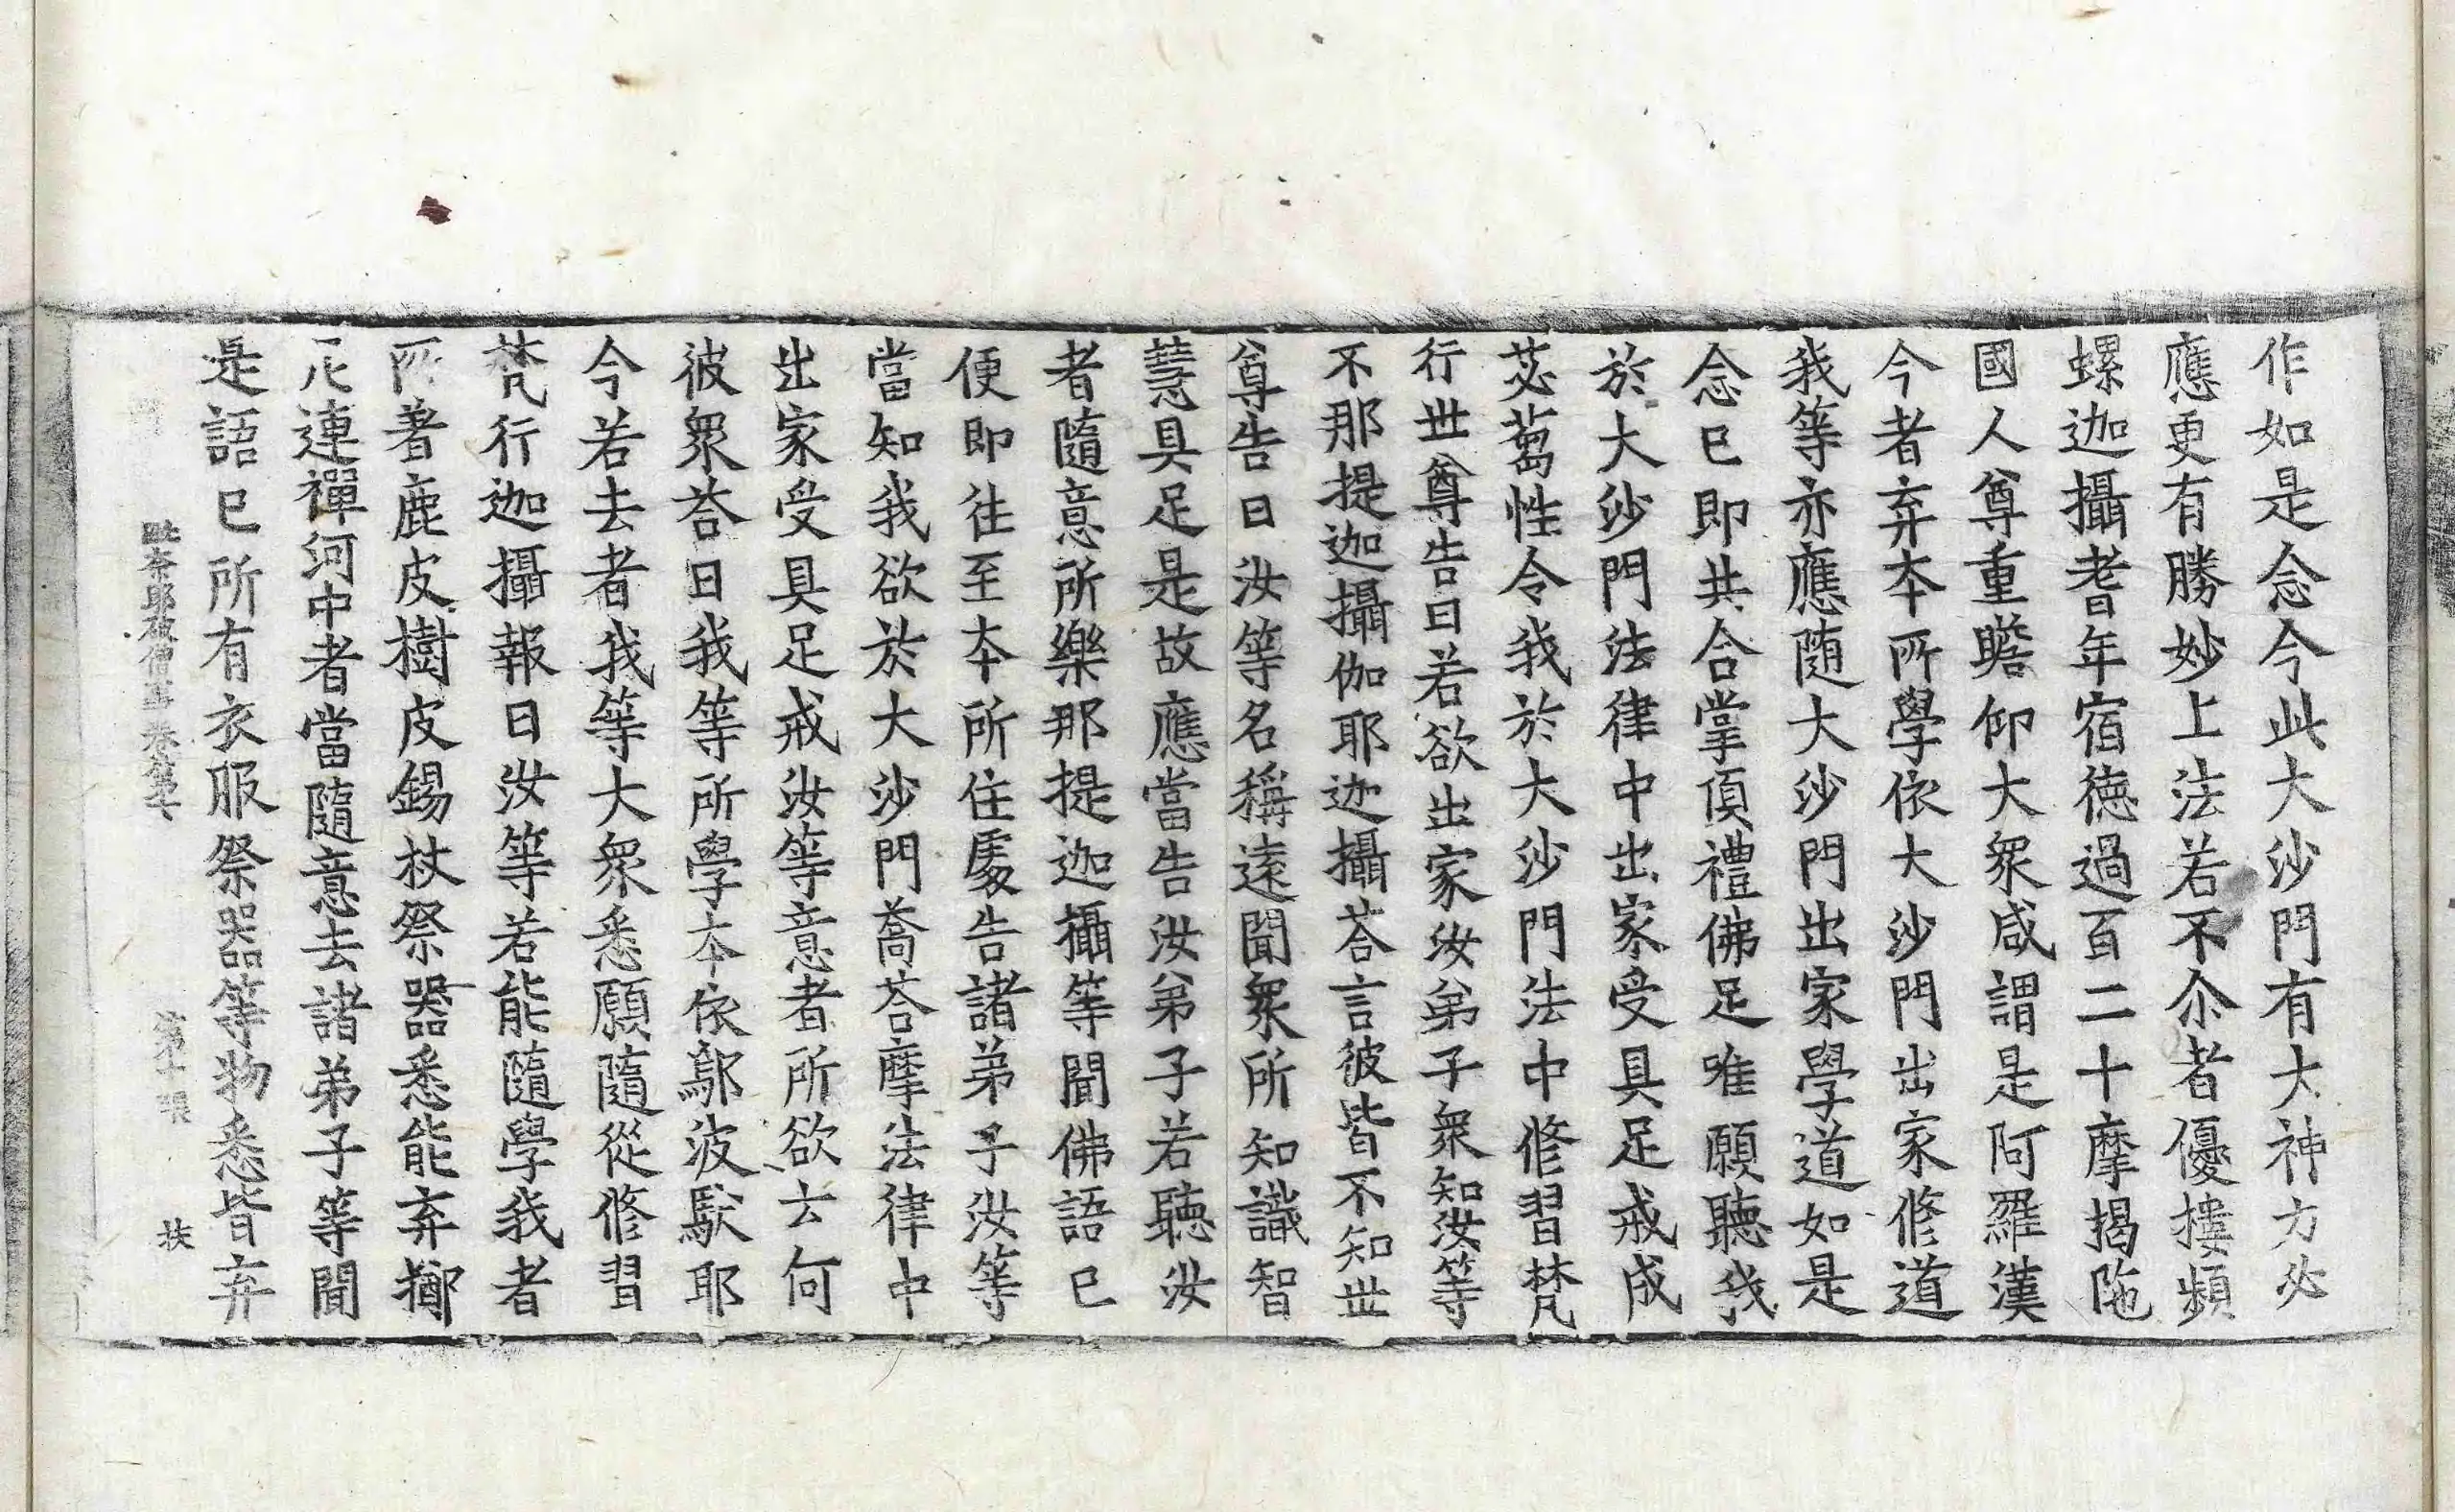 作如是念今此大沙門有大神方必
應更有勝妙上法若不尒者優摟頻
螺迦攝耆年宿德過百二十摩揭陁
國人尊重瞻仰大衆咸謂是阿羅漢
今者弃夲所學依大沙門出家修道
我等亦應随大沙門出家學道如是
念已即共合掌頂禮佛足唯願聽我
於大沙門法律中出家受具足戒成
苾蒭性令我於大沙門法中修習梵
行世尊告曰若欲出家汝弟子衆知汝等
不那提迦攝伽耶迦攝荅言彼皆不知世
尊告曰汝等名稱遠聞衆所知識智
慧具足是故應當告汝弟子若聽汝
者隨意所樂那提迦攝等聞佛語已
便即往至夲所住處告諸弟子汝等
當知我欲於大沙門喬荅摩法律中
出家受具足戒汝等意者所欲云何
彼衆荅曰我等所學夲依鄔波馱耶
今若去者我等大衆悉願隨從修習
梵行迦攝報曰汝等若能隨學我者
所著鹿皮樹皮錫杖祭器悉能弃擲
尼連禪河中者當隨意去諸弟子等聞
是語已所有衣服祭器等物悉皆弃
毗奈耶破僧事卷第七 第十張 扶